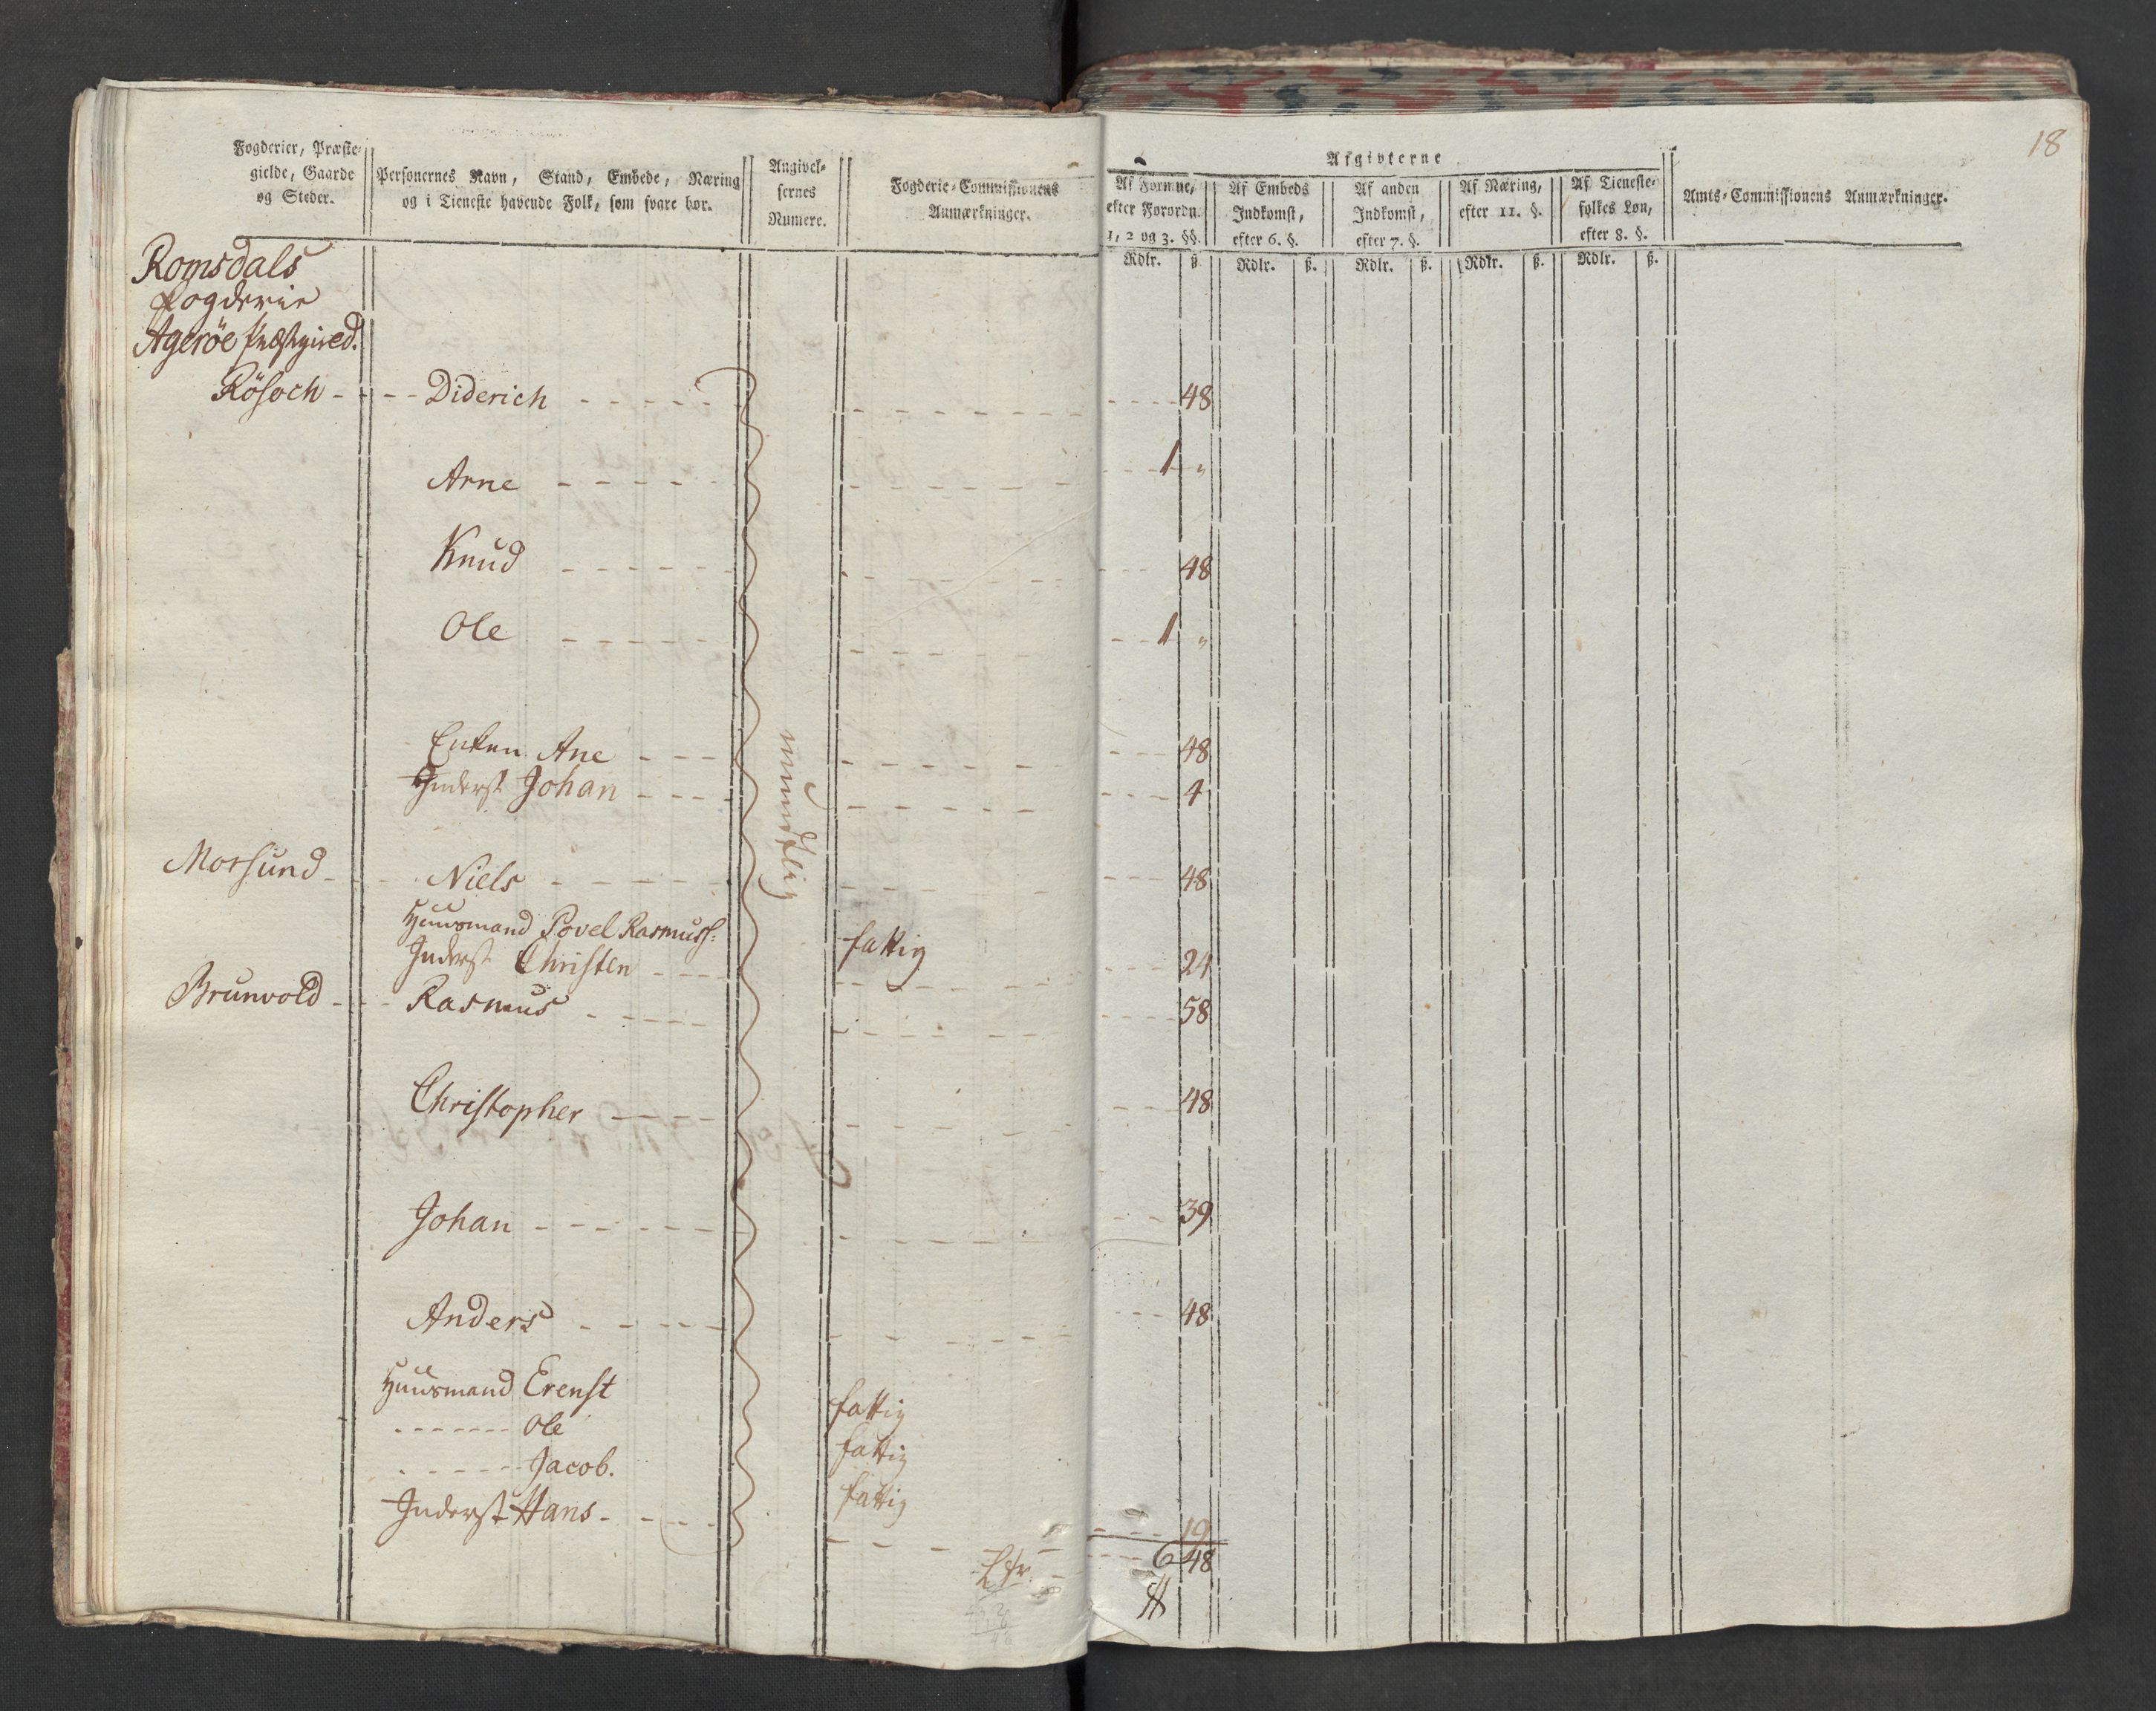 18
Fogderier, Præste-
gielde, Gaarde
og Steder.
Personernes Navn, Stand, Embede, Næring
og i Tieneste havende Folk, som svare bør.
Angivel-
sernes
Numere.
Fogderie-Commissionens
Anmærkninger.
Afgivterne
Af Formue,
efter Forordn.
1, 2 og 3. §§.
Af Embeds
Indkomst,
efter 6. §.
Af anden
Indkomst,
efter 7. §.
Af Næring,
efter 11. §.
Af Tieneste-
folkes Løn,
efter 8. §.
Amts-Commissionens Anmærkninger.
Rdlr. ß. Rdlr. ß. Rdlr. ß. Rdlr. ß. Rdlr. ß.
Romsdals
Fogderie
Agerøe Præstegield.
Rösoch - - - Diderich - - - - - 48
Arne - - - - - 1 "
Knud - - - - - 48
Ole - - - - - 1 "
Enken Ane - - - 48
Inderst Johan - - - - 4
mundtlig
Morsund - - - Niels - - - - - 48
Huusmand Povel Rasmuss: fattig
Inderst Christen - - - 24
Brunvold - - - Rasmus - - - - - 58
Christopher - - - - 48
Johan - - - - - - 39
Anders - - - - - 48
Huusmand Erenst fattig
- - - - - - Ole fattig
- - - - - - Jacob. fattig
Inderst Hans - - - - 19
Ltr. - - - 6 48